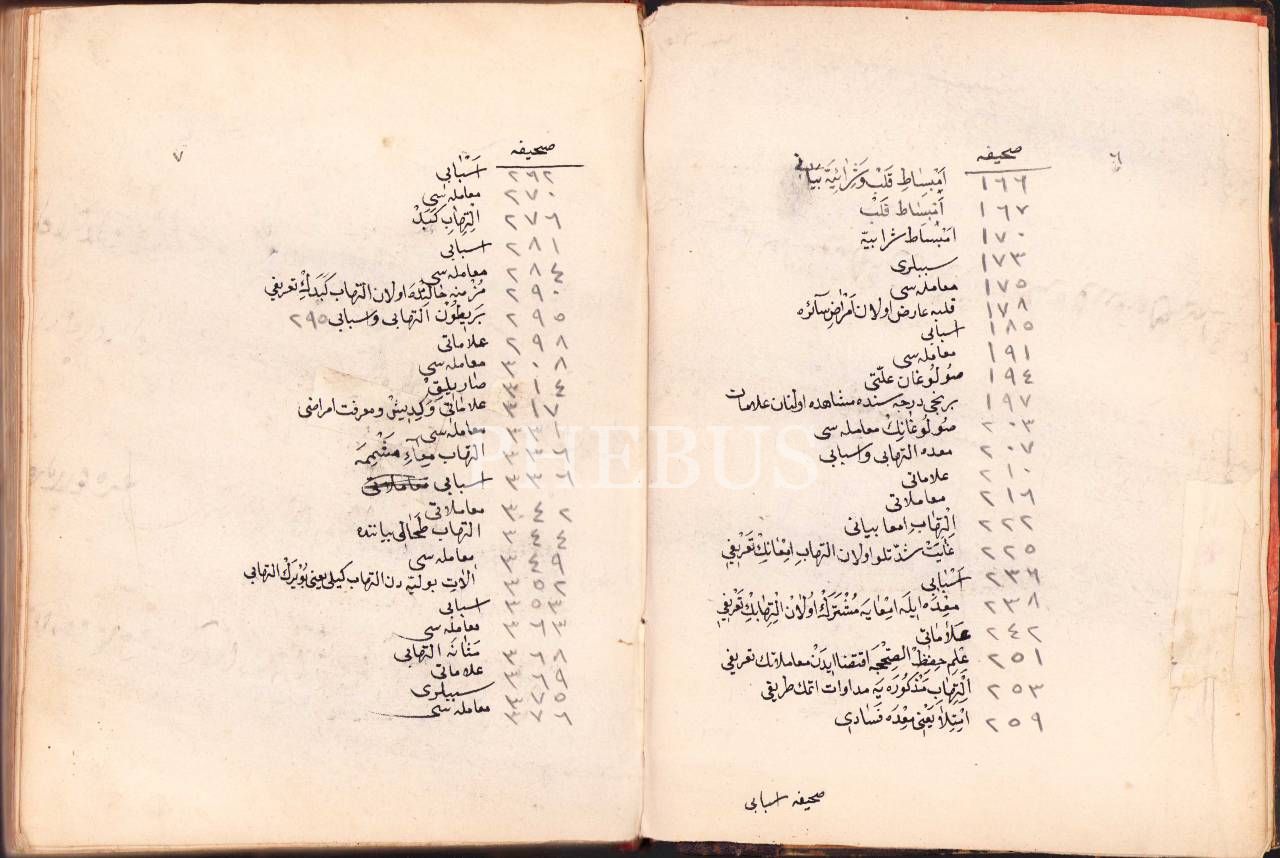 ٦
صحیفه
١٦٦ اَنْبِسَاطِ قَلْبْ وَشَرَائِيَّه بَيَانِى
١٦٧ اَنْبِسَاط قَلْبْ
١٧٠ انبساط شرابيّه
١٧٣ سببلرى
١٧٥ معامله سى
١٧٨ قلبه عارض اولان اَمْرَاضِ سآئره
١٨٥ اسبابى
١٩١ معامله سى
١٩٤ صُولُوغان علّتى
١٩٧ برنجى درجه سنده مشاهده اولنان علامات
٢٠٣ صُولُوغَانِكْ معامله سى
٢٠٧ معده التهابى واسبابى
٢١٠ علاماتى
٢١٦ معاملاتى
٢٢٢ اِلْتِهَابِ امعا بيانى
٢٢٥ غَايَتْ شِدَّتلو اولان التهابِ امعَانِكْ تَعْرِيفِى
٢٣٦ اَسْبَابى
٢٣٨ مِعْدَه ايلَه امعايه مُشْتَرَكْ اولان اِلْتِهَابِكْ تَعْرِيفِى
٢٤٢ عَلاَمَاتِى
٢٥١ عِلْمِ حِفْظُ الصِّحَّه اقتضا ايدَنْ معاملاتك تعريفى
٢٥٣ اِلْتِهَابِ مَذْكُورَه يه مداوات اتمك طريقى
٢٥٩ اِمْتِلاَ يَعْنِى مِعْدَه فَسَادى
صحیفه اسبابى
٧
صحیفه
٢٦٢ اَسْبَابى
٢٧٠ معامله سى
٢٧٦ اِلْتِهَابِ كَبَدْ
٢٨١ اسبابى
٢٨٤ معامله سى
٢٩٠ مُزْمِن حَالِنْدَه اولان التهاب كَبَدِكْ تعريفى
٢٩٥ بَرِيطُونْ التهابى واسبابى ٢٩٥
٢٩٨ علاماتى
٣٠٨ معامله سى
٣١٤ صاريلِقْ
٣١٧ علاماتى وكيديش ومعرفت امراضى
معامله سى
٣٣٦ التهاب مِعَاءِ
٣٣٦ اسبابى معاملاتى
٣٤٢ معاملاتى
٣٤٤ التهاب طحالى بياننده
٣٤٩ معامله سى
٣٥٢ الات بوليّه دن التهاب كيلى يعنى بُوْيرَكْ التهابى
٣٥٣ اسبابى
معامله سى
٣٦٨ مَثَانَه التهابى
٣٦٩ علاماتى
٣٧٥ سببلرى
٣٧٦ معامله سى
PHEBUS